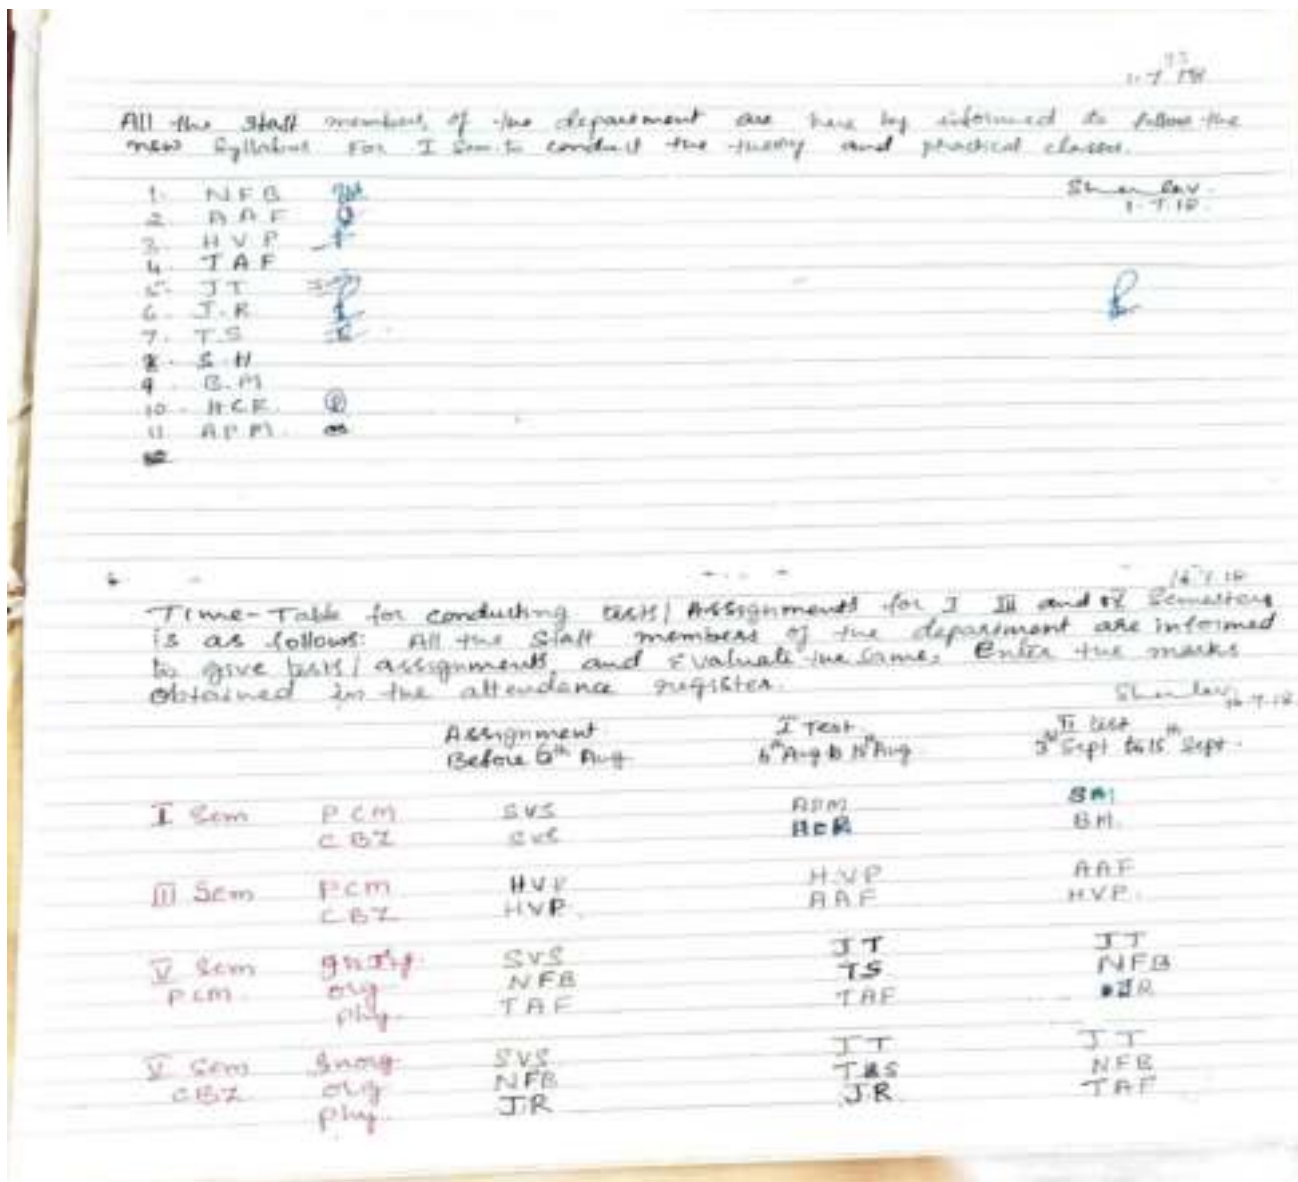 1.7.18
All the staff members of the department are here by informed to follow the
new Syllabus For I Sem to conduct the theory and practical classes.
1. NFB
1.7.18.
2. AAF
3. HVP
4. TAF
5. JT
6. J.R
7. T.S
8. S.H
9. B.M
10. HCR
11. APM.
16.7.18
Time-Table for conducting tests/ Assignments for I III and V Semesters
is as follows: All the Staff members of the department are informed
to give tests/ assignments and Evaluate the same. Enter the marks
obtained in the attendance register.
16.7.18
Assignment I Test II test
Before 6th Aug 6th Aug to Aug. 3rd Sept to 15th Sept.
I Sem PCM SVS APM BM
CBZ SVS HCR BM.
III Sem PCM HVP H.VP AAF
CBZ HVP. AAF HVP.
V Sem SVS JT JT
PCM. org NFB TS NFB
phy. TAF TAF JR
V Sem Inorg SVS JT JT
CBZ org NFB TS NFB
phy. J.R J.R TAF